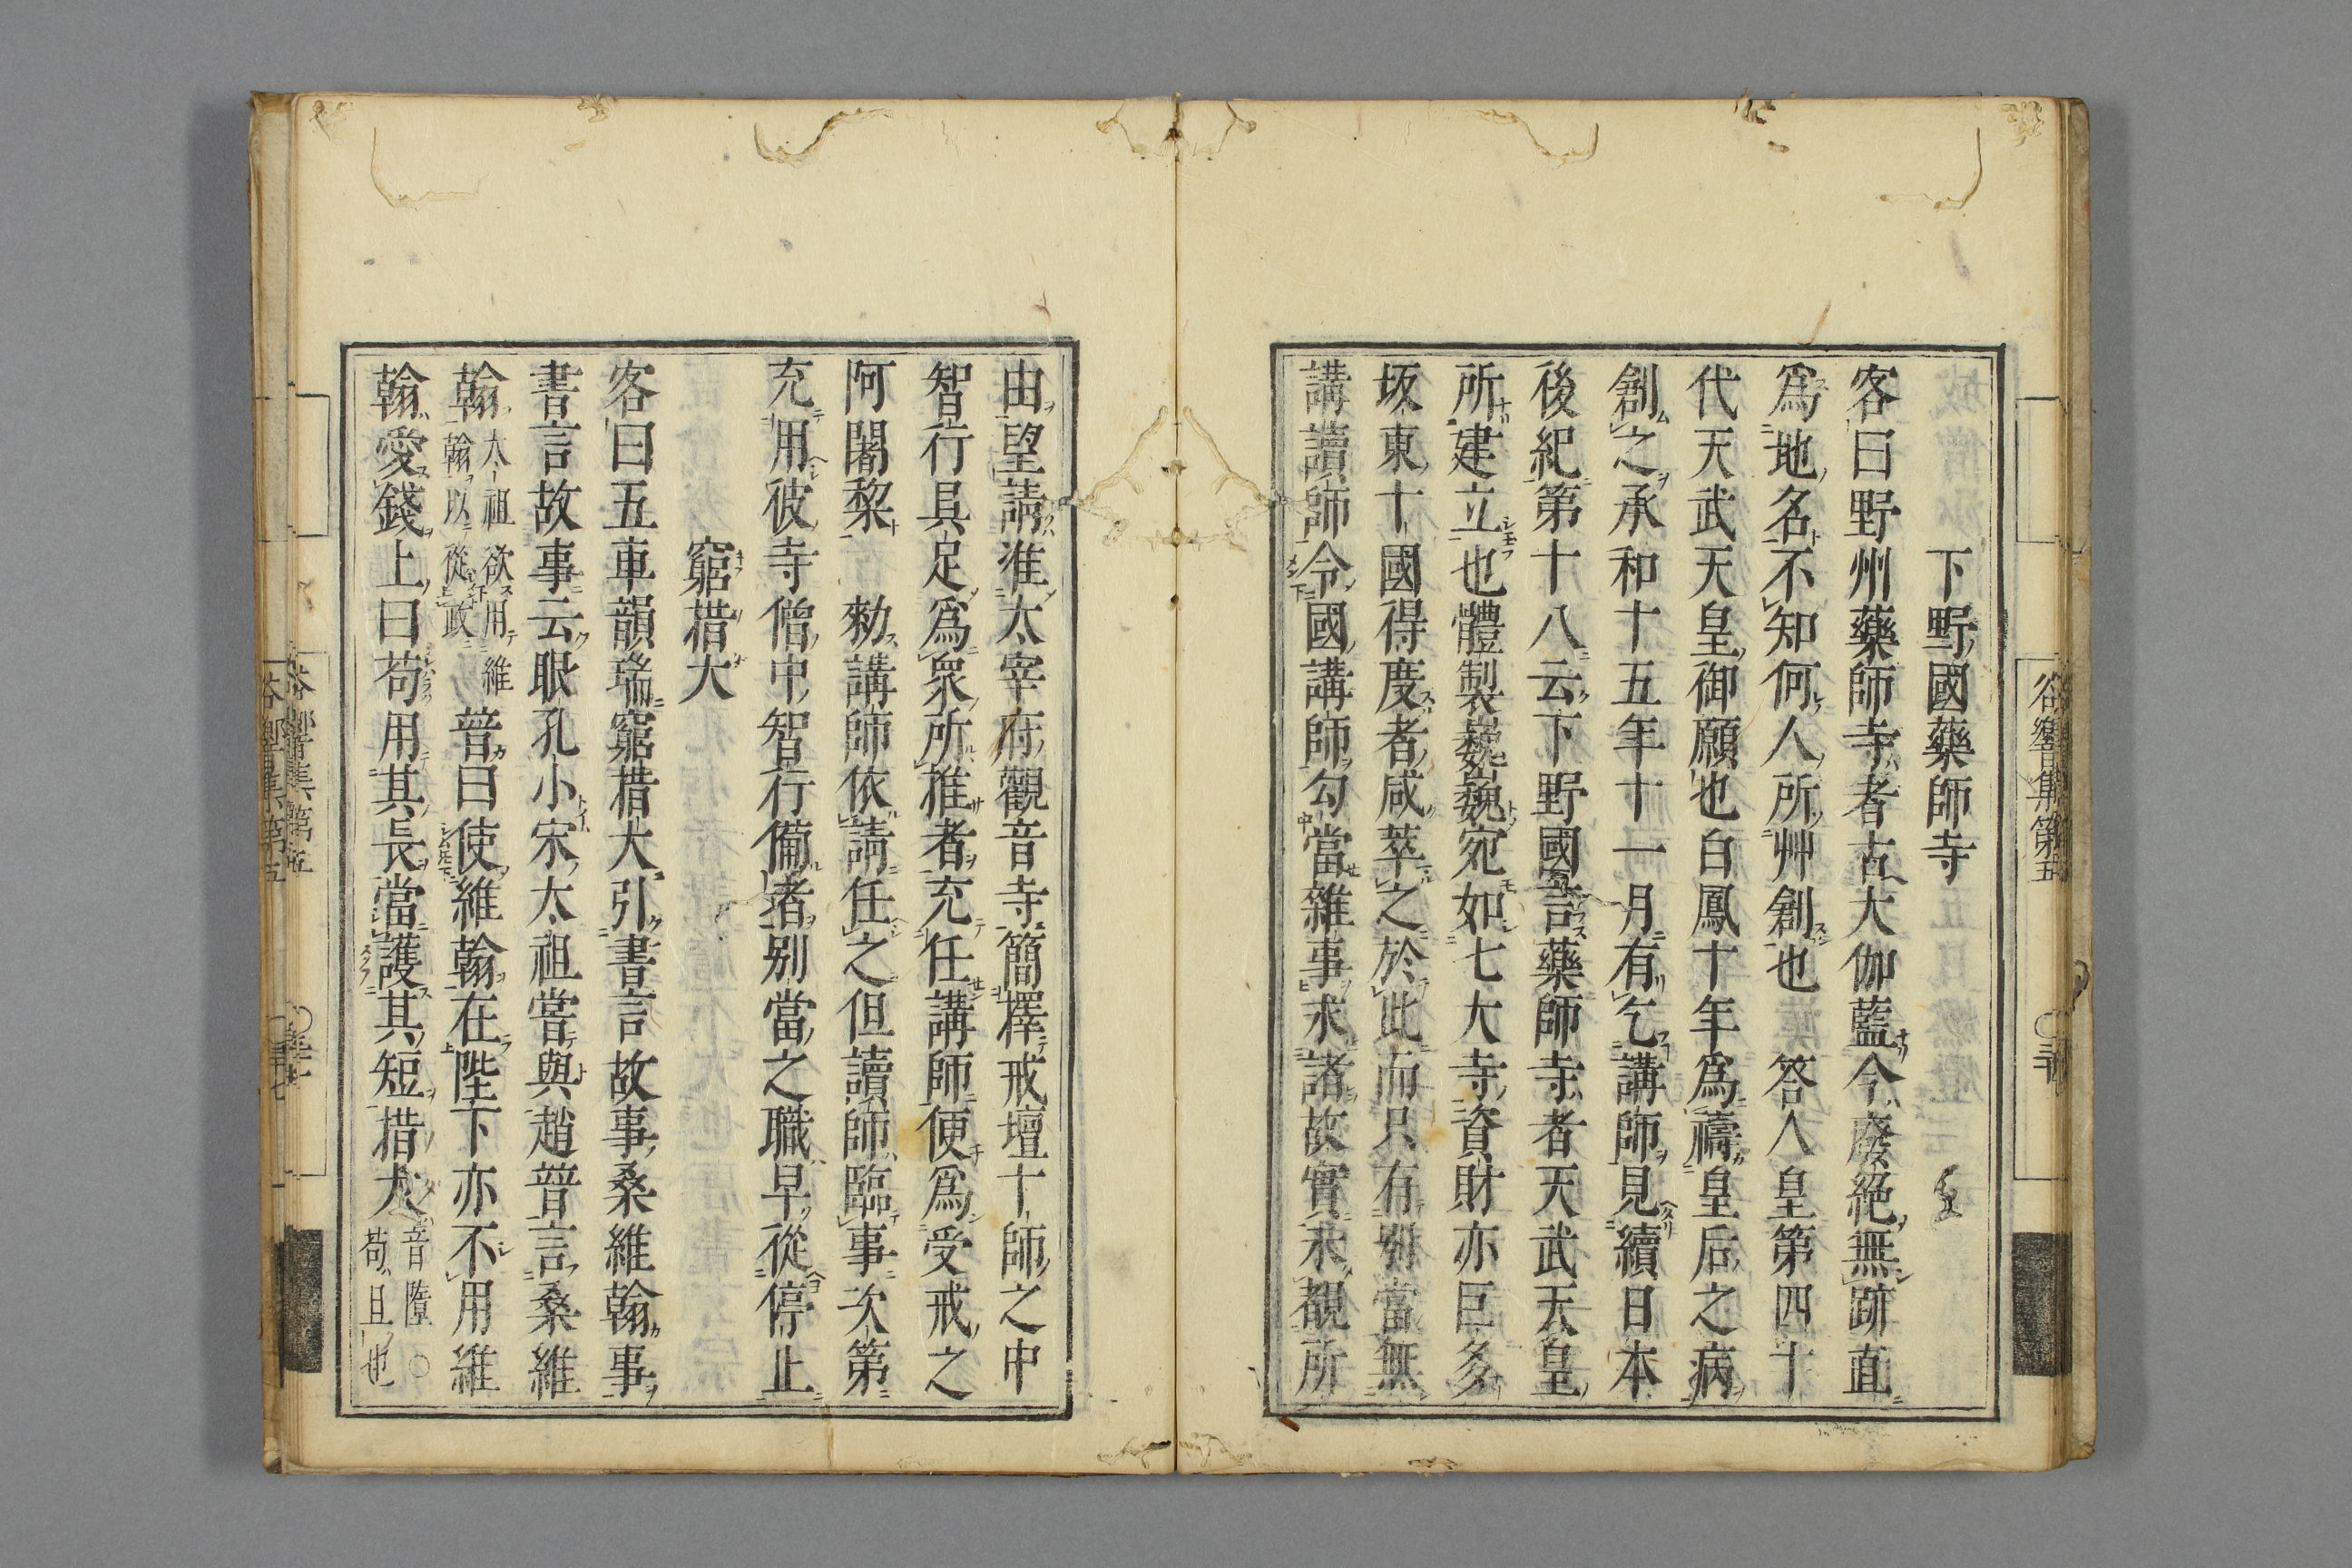 下野國藥師寺
客曰野州藥師寺者古大伽藍今廢絕無跡直
爲地名不知何人所艸創也　答人皇第四十
代天武天皇御願也白鳳十年爲禱皇后之病
創之承和十五年十一月有乞講師見續日本
後紀第十八云下野國言藥師寺者天武天皇
所建立也體製巍巍宛如七大寺資財亦巨多
坂東十國得度者咸萃之於此而只有別當無
講讀師令國講師勾當雜事求諸故實未覩所
由望請准太宰府觀音寺簡擇戒壇十師之中
智行具足爲衆所推者充任講師便爲受戒之
阿闍黎　勑講師依請任之但讀師臨事次第
充用彼寺僧中智行葡者別當之職早從停止
窮措大
客曰五車韻瑞窮措大引書言故事桑維翰事
書言故事云眼孔小宋太祖嘗與趙普言桑維
翰太祖欲用維翰以從政普曰使維翰在陛下亦不用維
翰愛錢上曰苟用其長當護其短措大音隓○苟且也
谷響集第五
谷響集第五